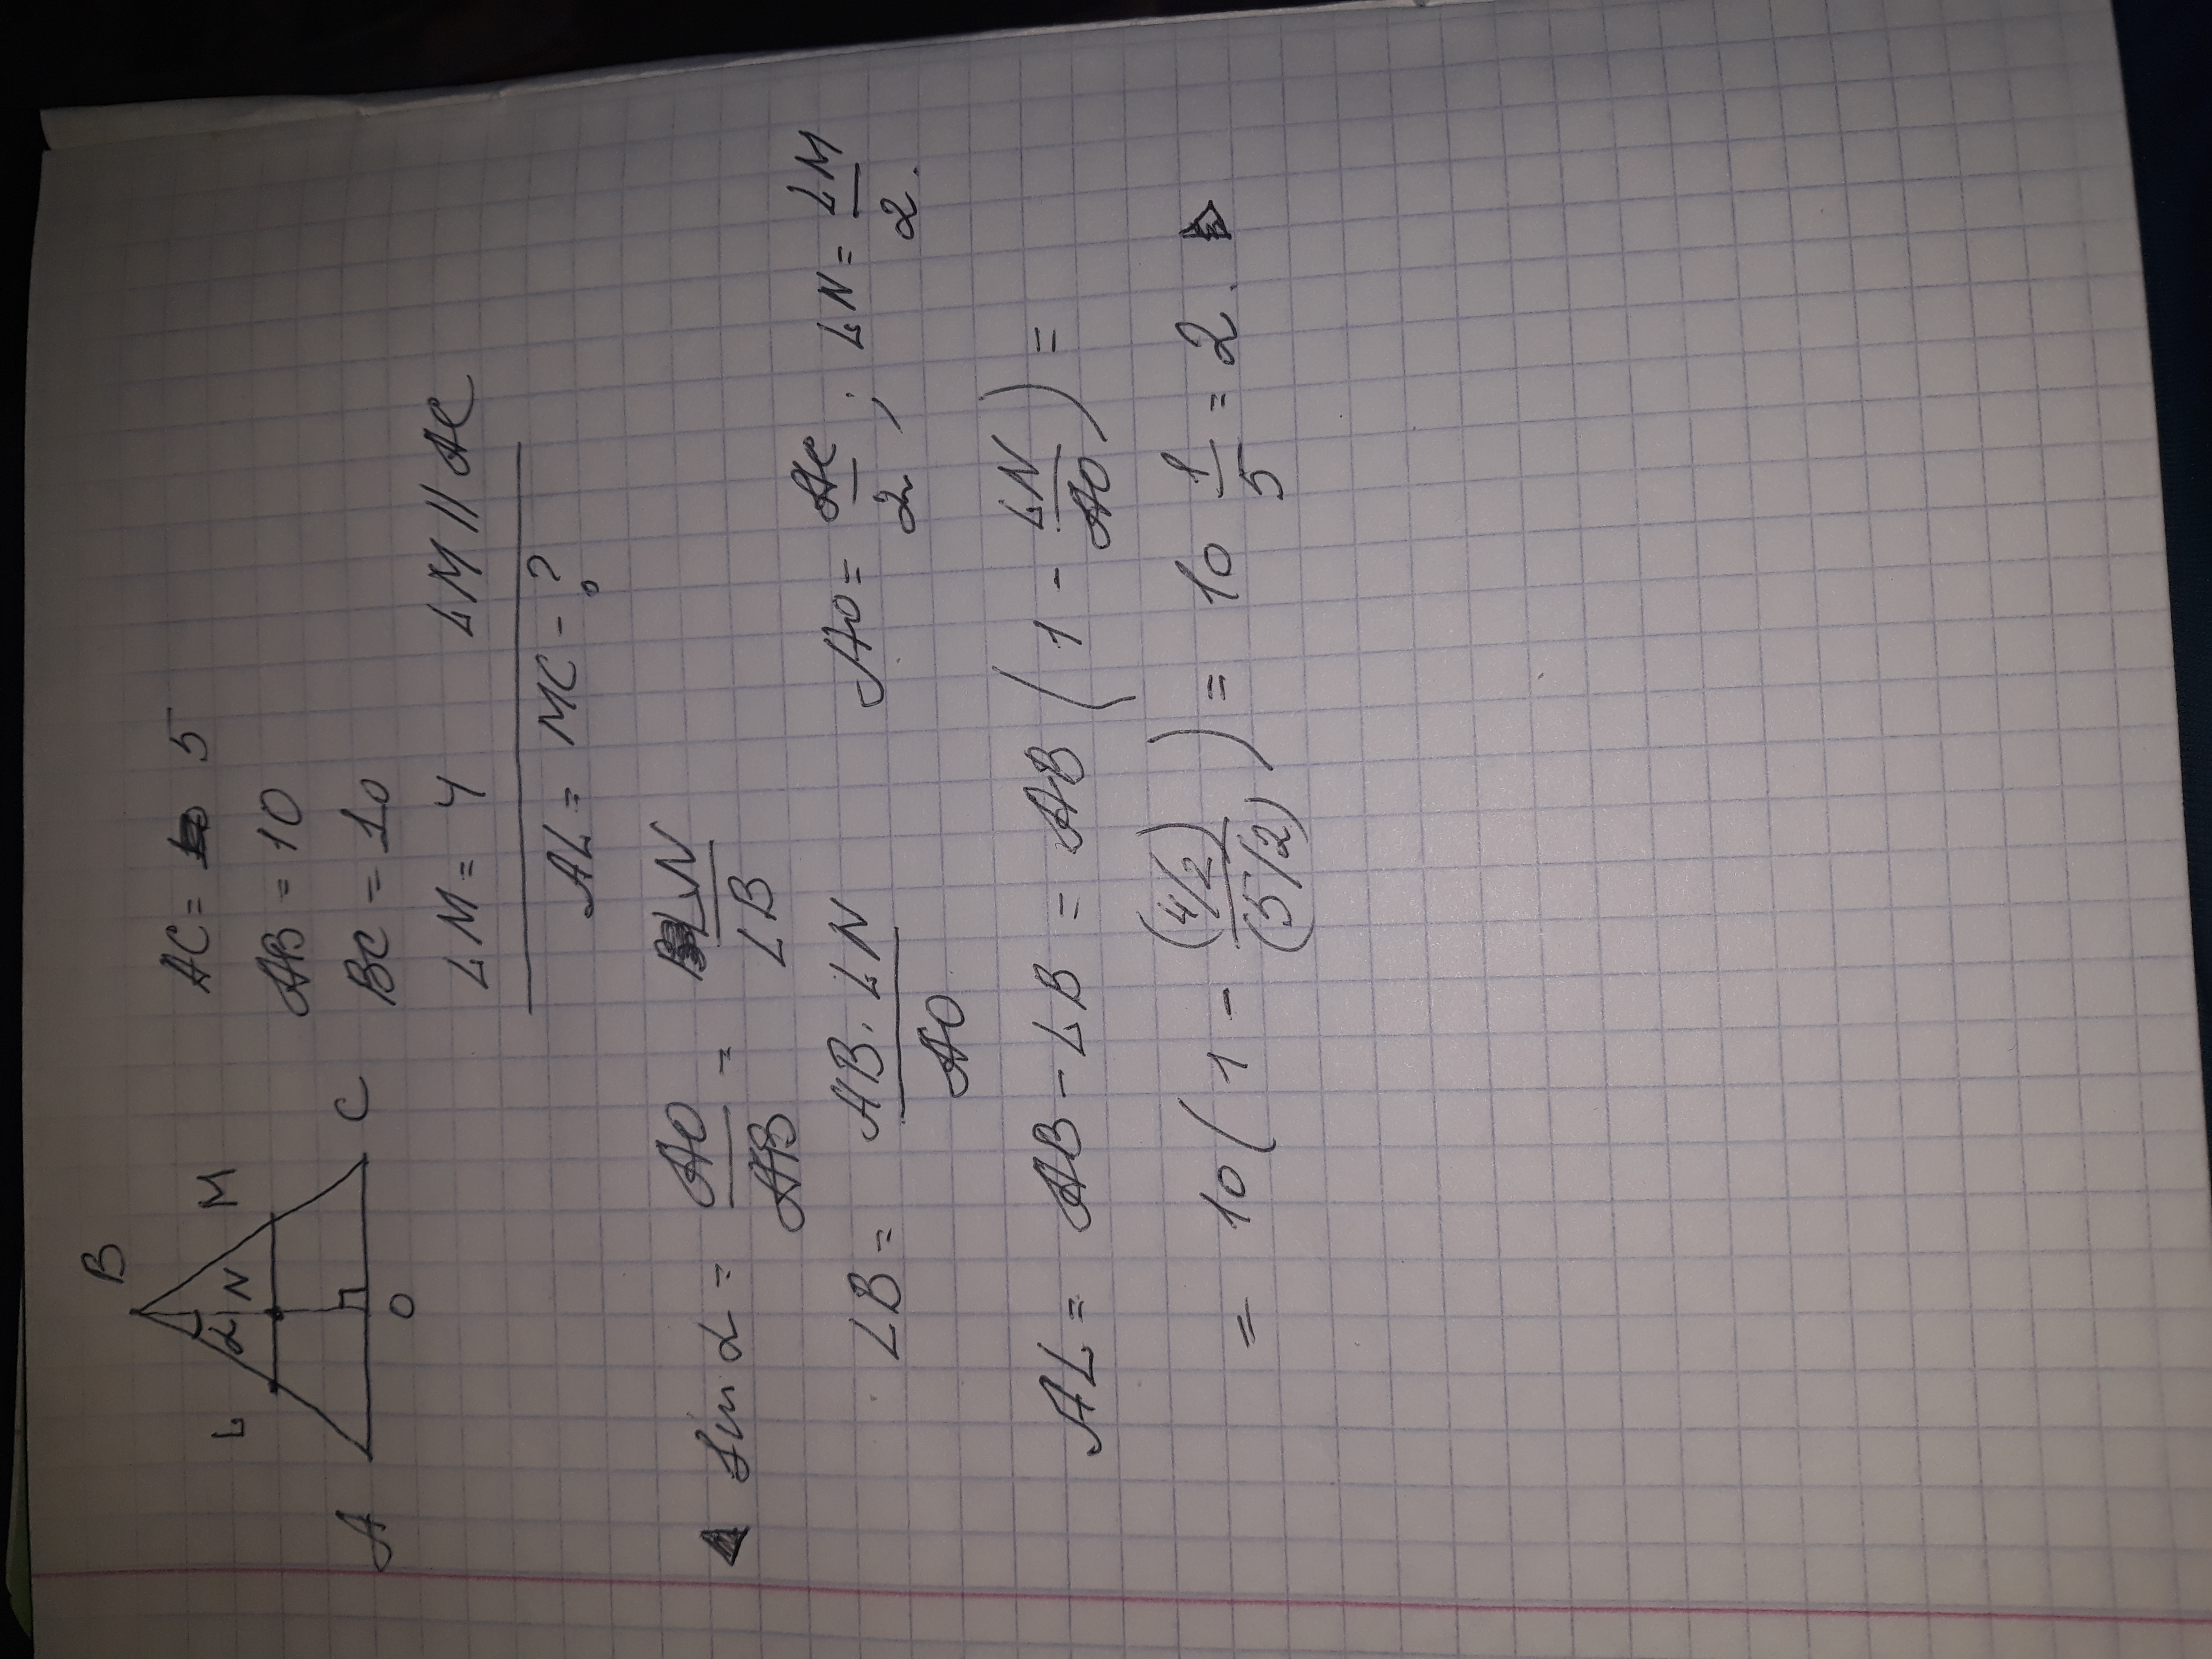 B
L N M
α
A O C
AC = 5
AB = 10
BC = 10
LM = 4 LM || AC
AL = MC - ?
sin α = AO/AB = LN/LB
LB = AB · LN/AO AO = AC/2 ; LN = LM/2.
AL = AB - LB = AB (1 - LN/AO) =
= 10 (1 - (4/2)/(5/2)) = 10 1/5 = 2.